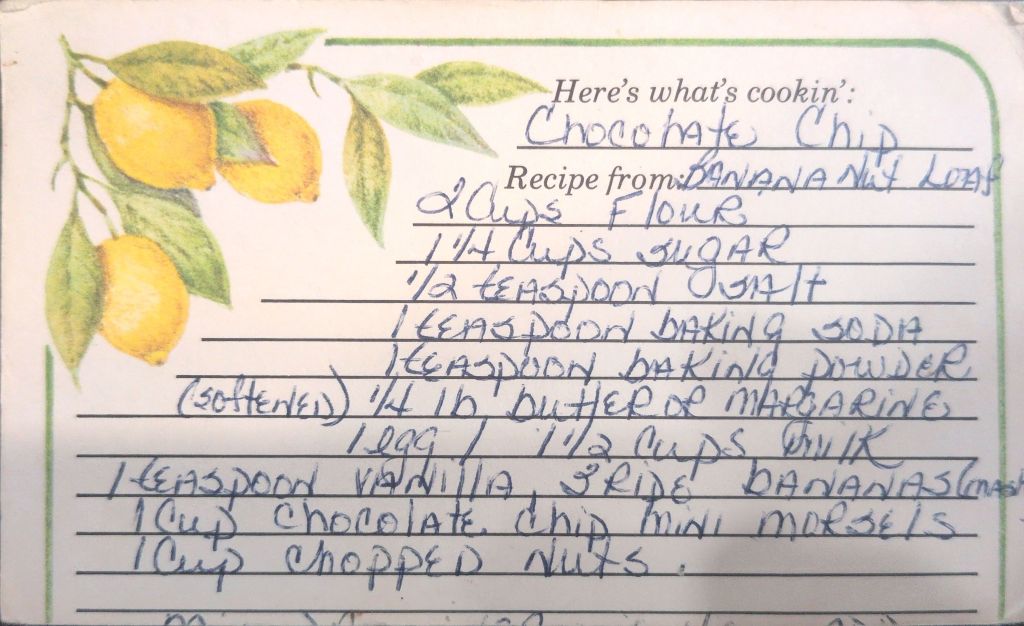 Here's what's cookin':
Chocolate Chip
Recipe from: BANANA Nut LOAF
2 Cups Flour
1 1/4 Cups sugar
1/2 teaspoon salt
1 teaspoon baking soda
1 teaspoon baking powder
(softened) 1/4 lb butter or margarine
1 egg / 1 1/2 cups milk
1 teaspoon vanilla, 3 ripe bananas (mash
1 Cup chocolate chip mini morsels
1 Cup chopped nuts.